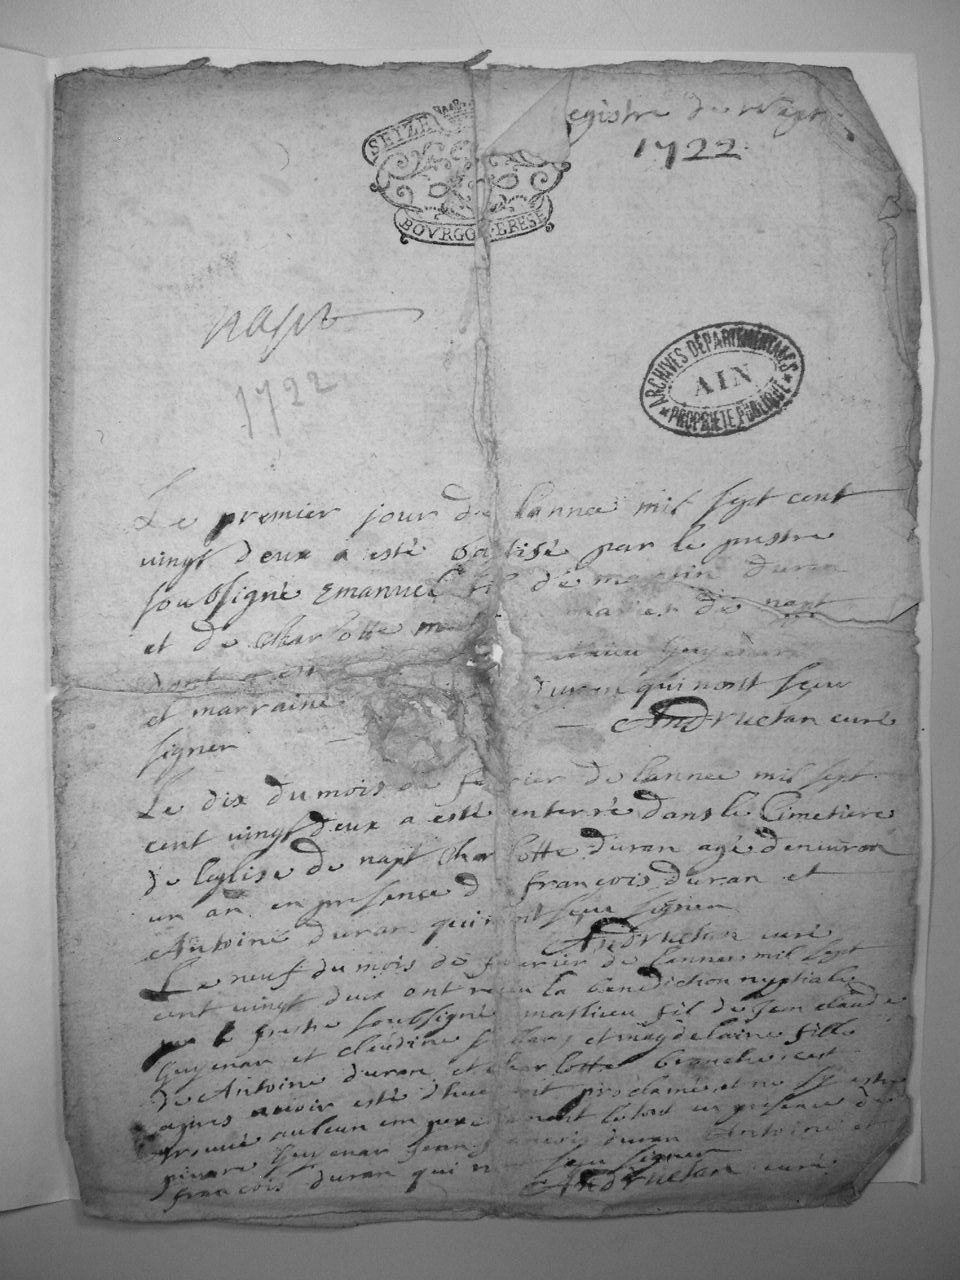 SEYZE
BOVRGO . BRESE
egistre de Napt
1722.
napt
1722
ARCHIVES DÉPARTEMENTALES
AIN
PROPRIÉTÉ PUBLIQUE
Le premier jour de lannee mil sept cent
vingt deux a esté batisé par le prestre
soubsigné Emanuel fil de martin duran
et de charlotte mariés de napt
dont a est
et marraine duran qui nont sceu
signer Andruetan curé
Le dix du mois de fevrier de lannee mil sept
cent vingt deux a esté enterré dans le Cimetiere
de leglise de napt charlotte duran agé denuiron
un an en presence de françois duran et
Antoine duran qui nont sceu signer
Andruetan curé
Le neuf du mois de fevrier de lannee mil sept
cent vingt deux ont receu la benediction nuptiale
par le prestre soubsigné mathieu fil de Jean claude
Guyenar et claudine et magdelaine fille
de Antoine duran et charlotte
apres avoir esté proclamé et ne sy estre
trouvé aulcun en presence de
Guyenar Jean françois duran Antoine et
françois duran qui n sceu signer
Andruetan curé